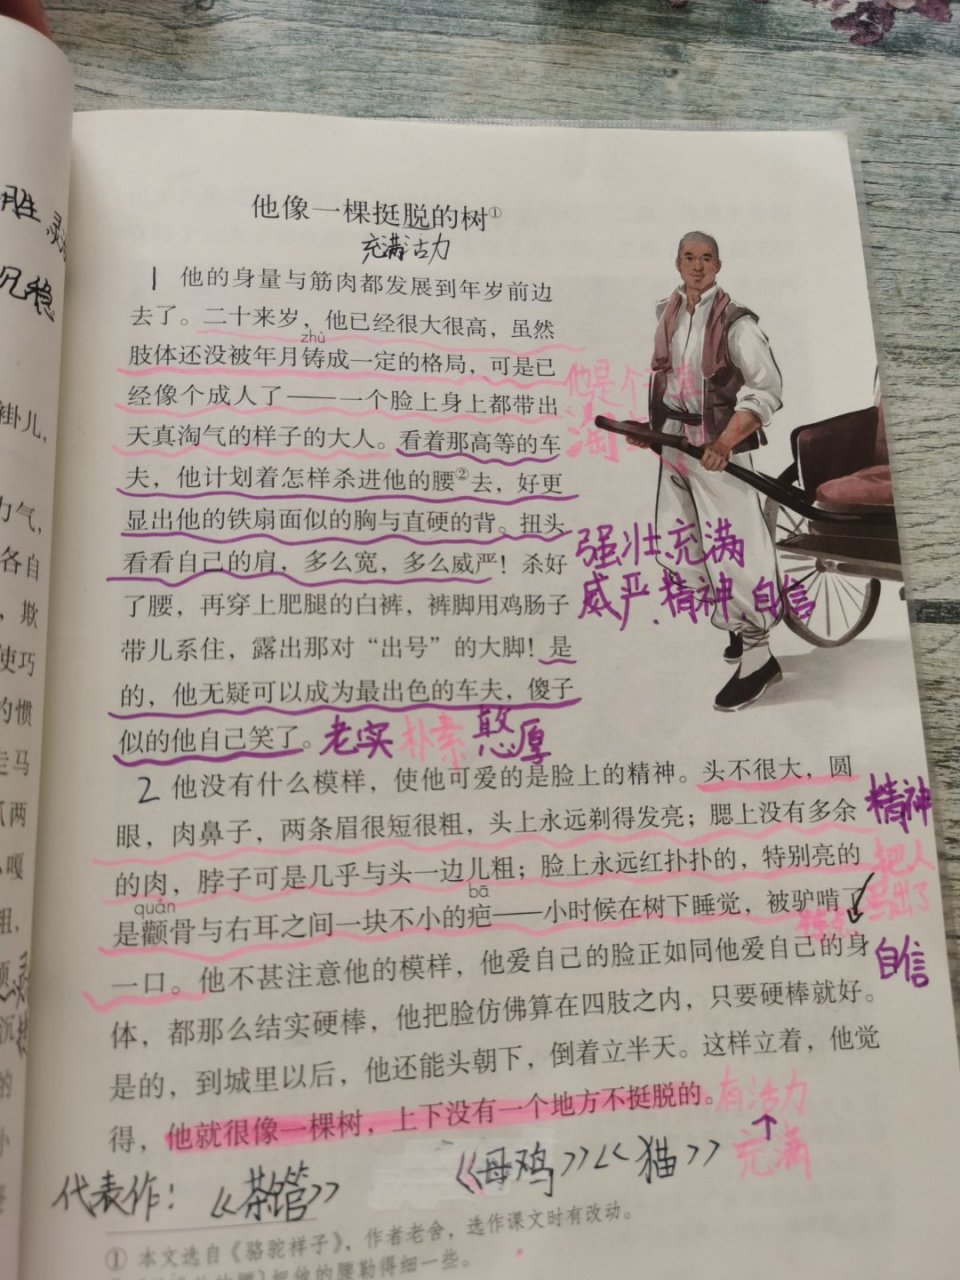 胜
灵活
沉稳
褂儿，
力气，
各自
，欺
使巧
的惯
走马
爪两
嘎
粗，
的
小
他像一棵挺脱的树①
充满活力
1 他的身量与筋肉都发展到年岁前边
去了。二十来岁，他已经很大很高，虽然
zhù
肢体还没被年月铸成一定的格局，可是已
经像个成人了——一个脸上身上都带出
天真淘气的样子的大人。看着那高等的车
夫，他计划着怎样杀进他的腰②去，好更
显出他的铁扇面似的胸与直硬的背。扭头
看看自己的肩，多么宽，多么威严！杀好
了腰，再穿上肥腿的白裤，裤脚用鸡肠子
带儿系住，露出那对“出号”的大脚！是
的，他无疑可以成为最出色的车夫，傻子
似的他自己笑了。老实 朴素 憨厚
他是个
淘
强壮 充满
威严、精神 自信
2 他没有什么模样，使他可爱的是脸上的精神。头不很大，圆
眼，肉鼻子，两条眉很短很粗，头上永远剃得发亮；腮上没有多余
的肉，脖子可是几乎与头一边儿粗；脸上永远红扑扑的，特别亮的
quán bā
是颧骨与右耳之间一块不小的疤——小时候在树下睡觉，被驴啃了
一口。他不甚注意他的模样，他爱自己的脸正如同他爱自己的身
体，都那么结实硬棒，他把脸仿佛算在四肢之内，只要硬棒就好。
是的，到城里以后，他还能头朝下，倒着立半天。这样立着，他觉
得，他就很像一棵树，上下没有一个地方不挺脱的。
精神
把人
写出了
自信
有活力
充满
代表作：《茶馆》 《母鸡》《猫》
① 本文选自《骆驼祥子》，作者老舍，选作课文时有改动。
把他的腰勒得细一些。